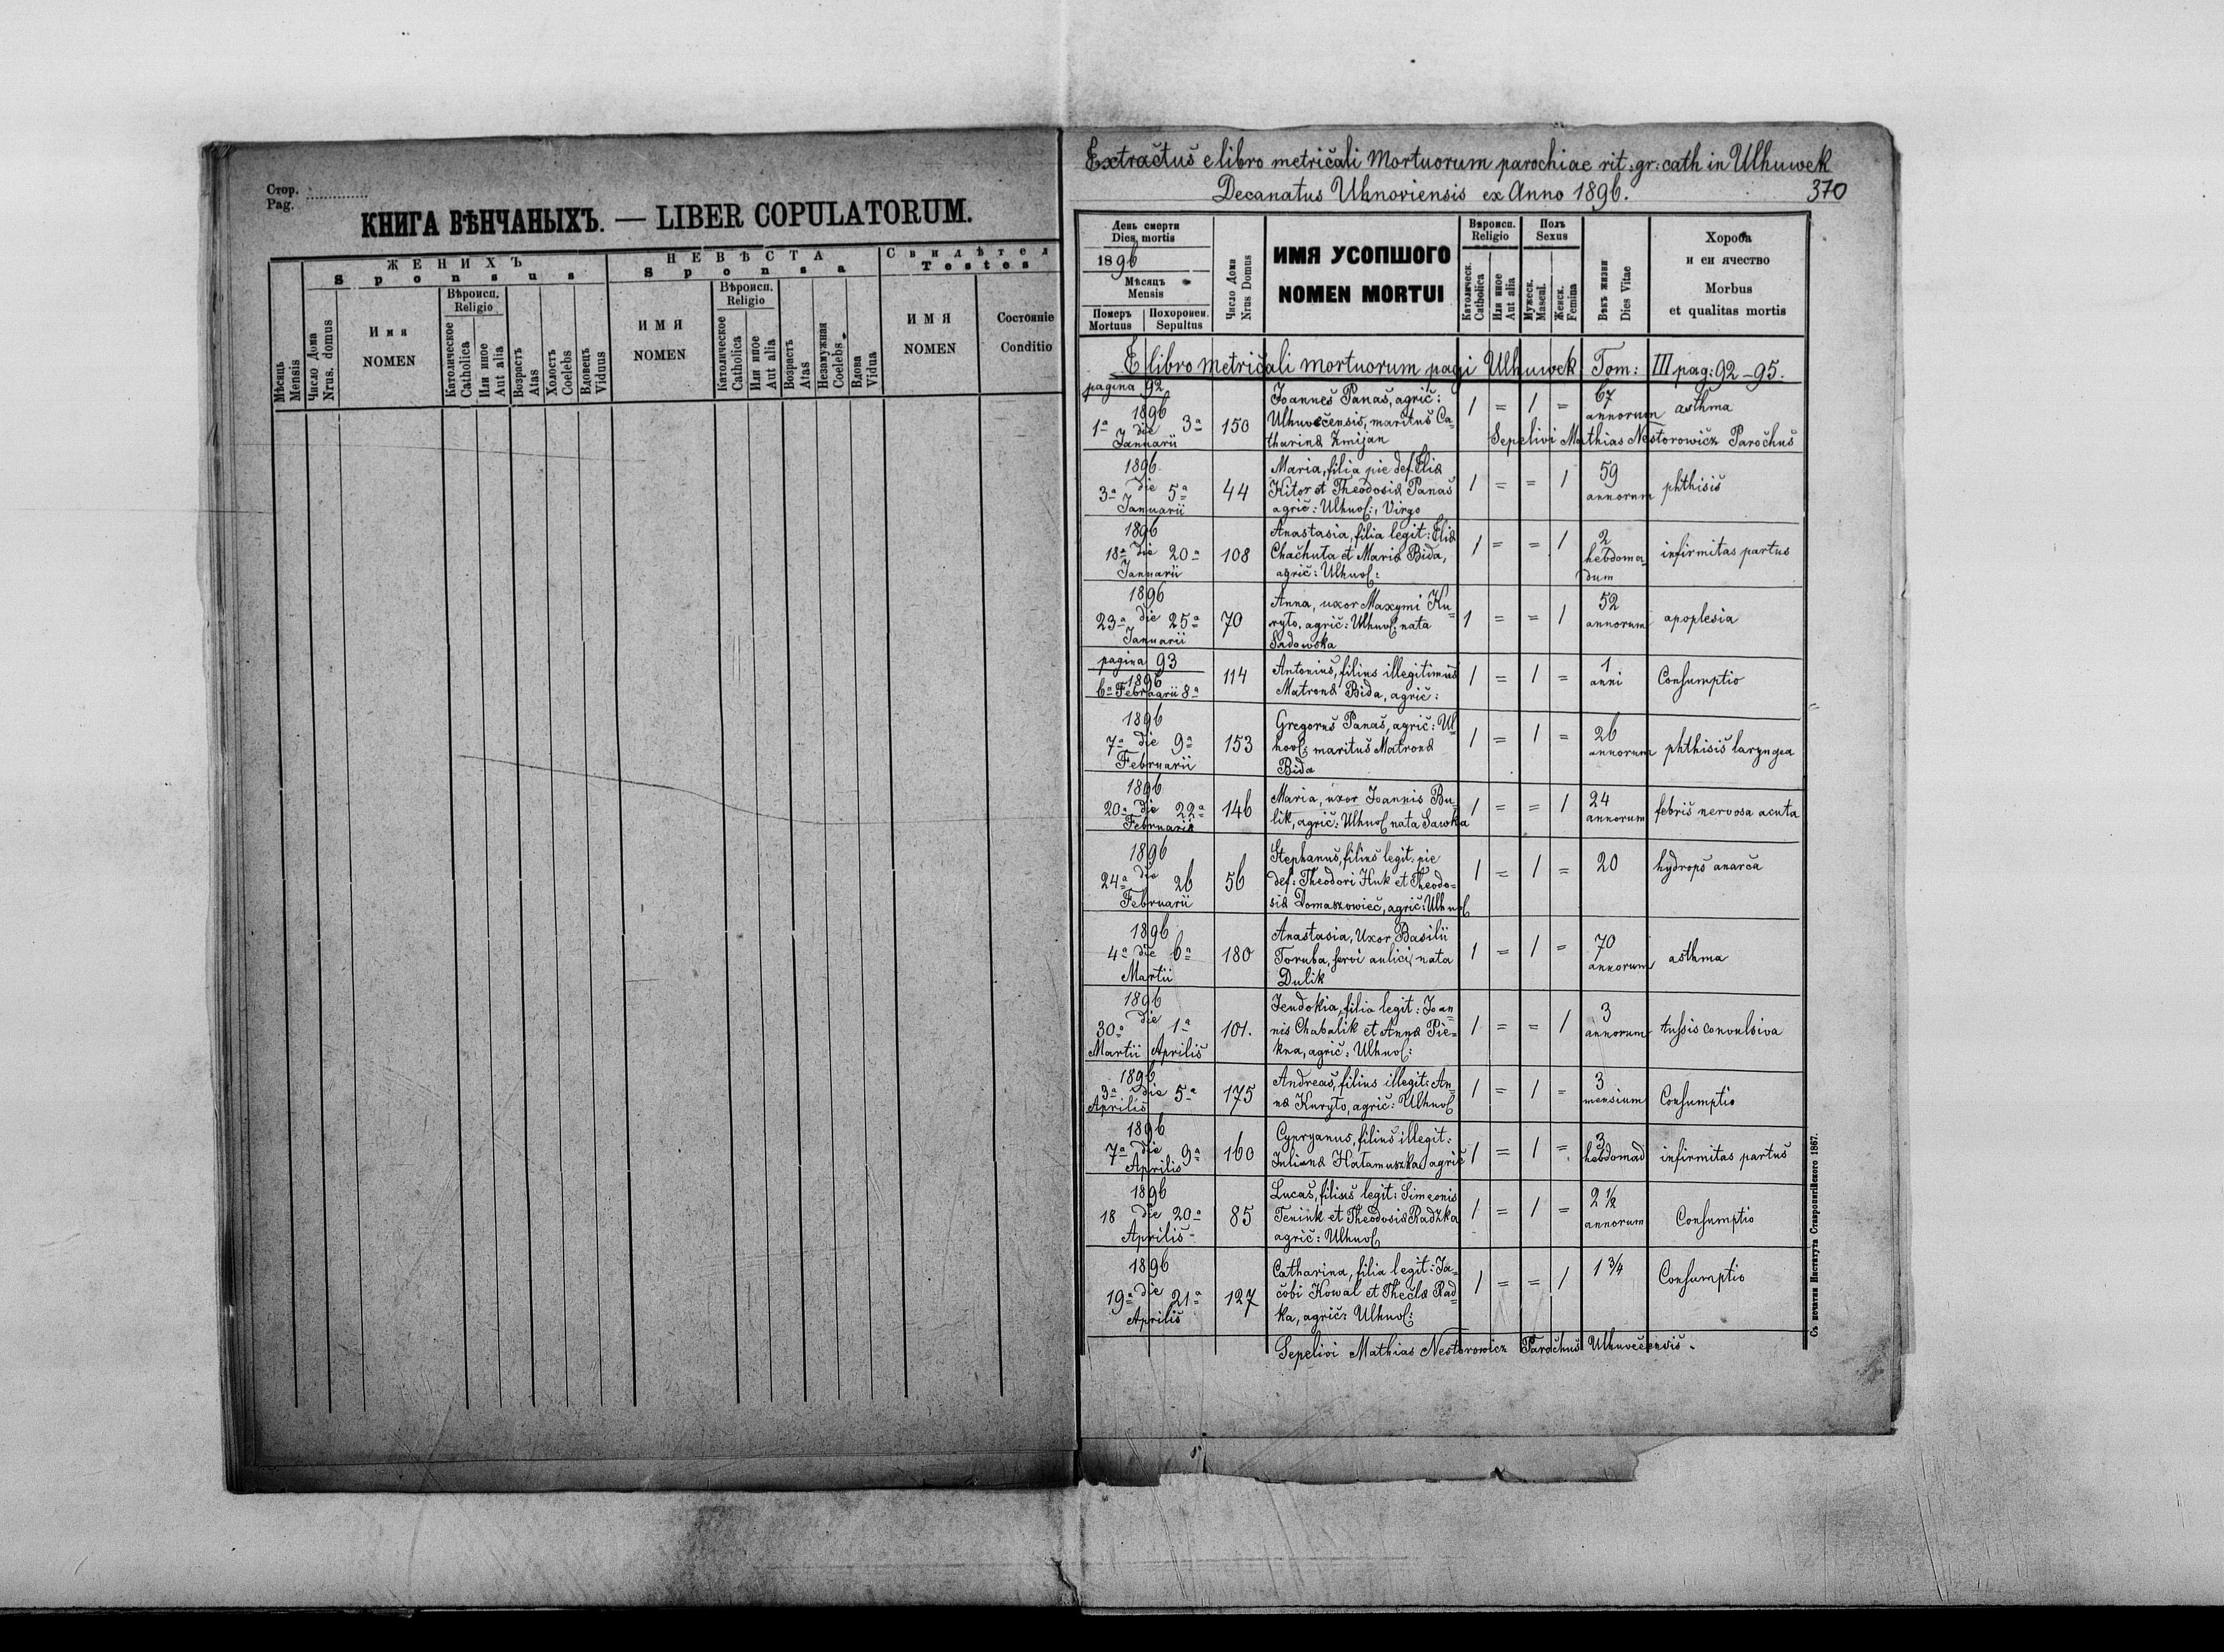 Стор.
Pag. ..............
КНИГА ВѢНЧАНЫХЪ. — LIBER COPULATORUM.
Мѣсяць
Mensis
ЖЕНИХЪ
Sponsus
Число Дома
Nrus. domus
Имя
NOMEN
Вѣроисп.
Religio
Католическое
Catholica
Или иное
Aut alia
Возрастъ
Atas
Холостъ
Coelebs
Вдовець
Viduus
НЕВѢСТА
Sponsa
ИМЯ
NOMEN
Вѣроисп.
Religio
Католическое
Catholica
Или иное
Aut alia
Возрастъ
Atas
Незамужная
Coelebs
Вдова
Vidua
Свидѣтел
Testes
ИМЯ
NOMEN
Состояніе
Conditio
Extractus e libro metricali Mortuorum parochiae rit: gr: cath in Ulhuwek
Decanatus Uhnoviensis ex Anno 1896.
370
День смерти
Dies mortis
1896
Мѣсяць
Mensis
Померъ
Mortuus
Похоронен.
Sepultus
Число Дома
Nrus Domus
ИМЯ УСОПШОГО
NOMEN MORTUI
Вѣроисп.
Religio
Католическ.
Catholica
Или иное
Aut alia
Полъ
Sexus
Мужеск.
Mascul.
Женск.
Femina
Вѣкъ жизни
Dies Vitae
Хороба
и еи ячество
Morbus
et qualitas mortis
E libro metricali mortuorum pagi Ulhuwek Tom: III pag: 92-95.
pagina 92
1896
1a die 3a
Januarii
150
Joannes Panas, agric:
Ulhuvecensis, maritus Ca-
tharina Zmijan
1 = 1 =
67
annorum
asthma
Sepelivi Mathias Nestorowicz Parochus
1896
3a die 5a
Januarii
44
Maria, filia pie def. Elia
Kitor et Theodosia Panas
agric: Ulhuv:, Virgo
1 = = 1
59
annorum
phthisis
1896
18a die 20a
Januarii
108
Anastasia, filia legit: Elia
Chachuta et Maria Bida,
agric: Ulhuv:
1 = = 1
2
hebdoma-
dum
infirmitas partus
1896
23a die 25a
Januarii
70
Anna, uxor Maxymi Ku-
ryto, agric: Ulhuv: nata
Sadowska
1 = = 1
52
annorum
apoplesia
pagina 93
1896
6a Februarii 8a
114
Antonius, filius illegitimus
Matrona Bida, agric:
1 = 1 =
1
anni
Consumptio
1896
7a die 9a
Februarii
153
Gregorus Panas, agric: Ul-
hov: maritus Matrona
Bida
1 = 1 =
26
annorum
phthisis laryngea
1896
20a die 22a
Februarii
146
Maria, uxor Joannis Bu-
lik, agric: Ulhuv nata Sawka
1 = = 1
24
annorum
febris nervosa acuta
1896
24a die 26
Februarii
56
Stephanus, filius legit: pie
def: Theodori Huk et Theodo-
sia Domaszowiec, agric: Ulhuv
1 = 1 =
20
hydrops anarca
1896
4a die 6a
Martii
180
Anastasia, Uxor Basilii
Toruba, servi aulici, nata
Dulik
1 = 1 =
70
annorum
asthma
1896
30a die 1a
Martii Aprilis
101.
Jeudokia, filia legit: Joan-
nis Chabalik et Anna Pie-
kna, agric: Ulhuv:
1 = = 1
3
annorum
tussis convulsiva
1896
3a die 5a
Aprilis
175
Andreas, filius illegit: An-
na Kuryto, agric: Ulhuv
1 = 1 =
3
mensium
Consumptio
1896
7a die 9a
Aprilis
160
Cypryanus, filius illegit:
Juliana Hatamuszka, agric
1 = 1 =
3
hebdomad
infirmitas partus
1896
18 die 20a
Aprilis
85
Lucas, filius legit: Simeonis
Teniuk et Theodosia Radzka
agric: Ulhuv
1 = 1 =
2 1/2
annorum
Consumptio
1896
19a die 21a
Aprilis
127
Catharina, filia legit: Ja-
cobi Kowal et Thecla Rad-
ka, agric: Ulhuv:
1 = = 1
1 3/4
Consumptio
Sepelivi Mathias Nestorowicz Parochus Ulhuvecensis.
Съ печатни Института Ставропигійского 1867.